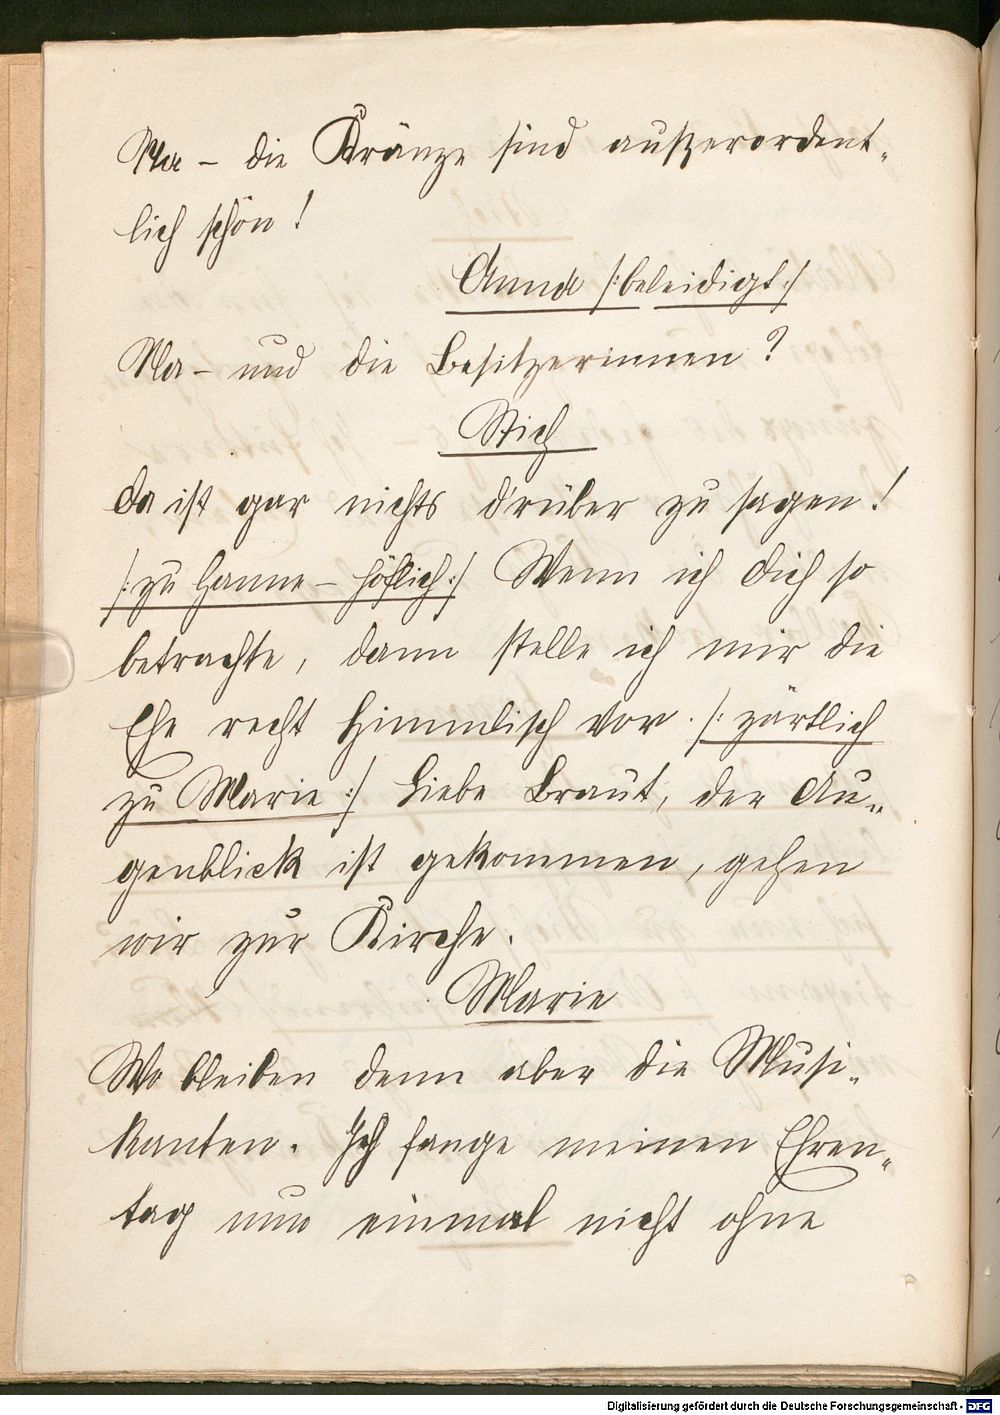 Na – die Kränze sind außerordent-
lich schön!
Anna /: beleidigt :/
Na – und die Besitzerinnen?
Stich
Da ist gar nichts d'rüber zu sagen!
/: zu Hanne – höflich :/ Wenn ich Dich so
betrachte, dann stelle ich mir die
Ehe recht himmlisch vor. /: zärtlich
zu Marie :/ Liebe Braut, der Au-
genblick ist gekommen, gehen
wir zur Kirche.
Marie
Wo bleiben denn aber die Musi-
kanten. Ich fange meinen Ehren-
tag nun einmal nicht ohne
Digitalisierung gefördert durch die Deutsche Forschungsgemeinschaft - DFG